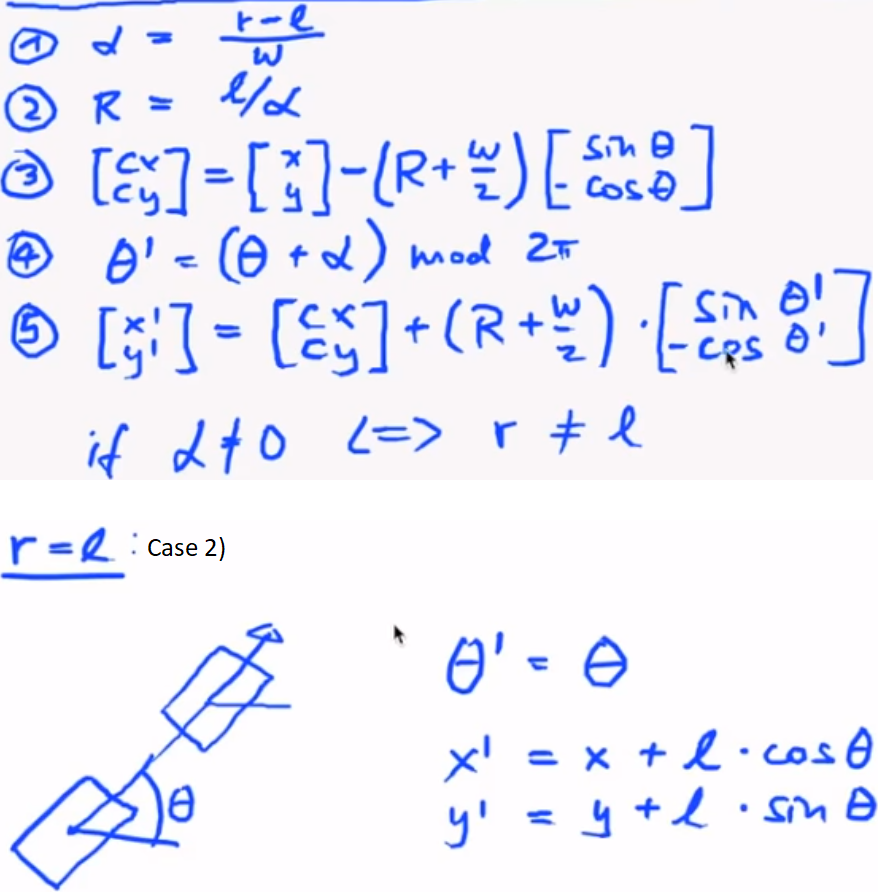 ① α = (r-l)/w
② R = l/α
③ [cx cy] = [x y] - (R + w/2) [sin θ -cos θ]
④ θ' = (θ + α) mod 2π
⑤ [x' y'] = [cx cy] + (R + w/2) · [sin θ' -cos θ']
if α ≠ 0 <=> r ≠ l
r = l : Case 2)
θ' = θ
x' = x + l · cos θ
θ
y' = y + l · sin θ